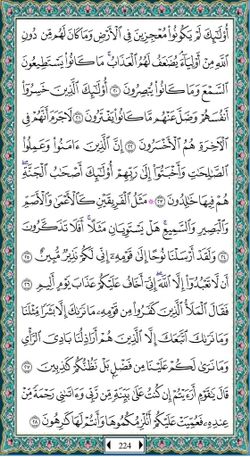 أُوْلَٰٓئِكَ لَمْ يَكُونُوا۟ مُعْجِزِينَ فِى ٱلْأَرْضِ وَمَا كَانَ لَهُم مِّن دُونِ
ٱللَّهِ مِنْ أَوْلِيَآءَ يُضَٰعَفُ لَهُمُ ٱلْعَذَابُ مَا كَانُوا۟ يَسْتَطِيعُونَ
ٱلسَّمْعَ وَمَا كَانُوا۟ يُبْصِرُونَ ٢٠ أُوْلَٰٓئِكَ ٱلَّذِينَ خَسِرُوٓا۟
أَنفُسَهُمْ وَضَلَّ عَنْهُم مَّا كَانُوا۟ يَفْتَرُونَ ٢١ لَا جَرَمَ أَنَّهُمْ فِى
ٱلْءَاخِرَةِ هُمُ ٱلْأَخْسَرُونَ ٢٢ إِنَّ ٱلَّذِينَ ءَامَنُوا۟ وَعَمِلُوا۟
ٱلصَّٰلِحَٰتِ وَأَخْبَتُوٓا۟ إِلَىٰ رَبِّهِمْ أُوْلَٰٓئِكَ أَصْحَٰبُ ٱلْجَنَّةِ
هُمْ فِيهَا خَٰلِدُونَ ٢٣ مَثَلُ ٱلْفَرِيقَيْنِ كَٱلْأَعْمَىٰ وَٱلْأَصَمِّ
وَٱلْبَصِيرِ وَٱلسَّمِيعِ هَلْ يَسْتَوِيَانِ مَثَلًا أَفَلَا تَذَكَّرُونَ
٢٤ وَلَقَدْ أَرْسَلْنَا نُوحًا إِلَىٰ قَوْمِهِۦٓ إِنِّى لَكُمْ نَذِيرٌ مُّبِينٌ
٢٥ أَن لَّا تَعْبُدُوٓا۟ إِلَّا ٱللَّهَ إِنِّىٓ أَخَافُ عَلَيْكُمْ عَذَابَ يَوْمٍ أَلِيمٍ ٢٦
فَقَالَ ٱلْمَلَأُ ٱلَّذِينَ كَفَرُوا۟ مِن قَوْمِهِۦ مَا نَرَىٰكَ إِلَّا بَشَرًا مِّثْلَنَا
وَمَا نَرَىٰكَ ٱتَّبَعَكَ إِلَّا ٱلَّذِينَ هُمْ أَرَاذِلُنَا بَادِىَ ٱلرَّأْىِ
وَمَا نَرَىٰ لَكُمْ عَلَيْنَا مِن فَضْلٍۭ بَلْ نَظُنُّكُمْ كَٰذِبِينَ
٢٧ قَالَ يَٰقَوْمِ أَرَءَيْتُمْ إِن كُنتُ عَلَىٰ بَيِّنَةٍ مِّن رَّبِّى وَءَاتَىٰنِى رَحْمَةً مِّنْ
عِندِهِۦ فَعُمِّيَتْ عَلَيْكُمْ أَنُلْزِمُكُمُوهَا وَأَنتُمْ لَهَا كَٰرِهُونَ ٢٨
224